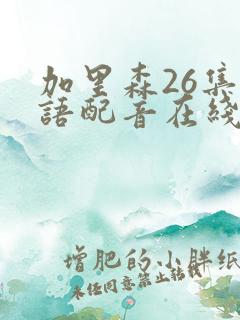 加里森26集
語配音在綫
增肥的小胖紙
未任同意禁止轉載